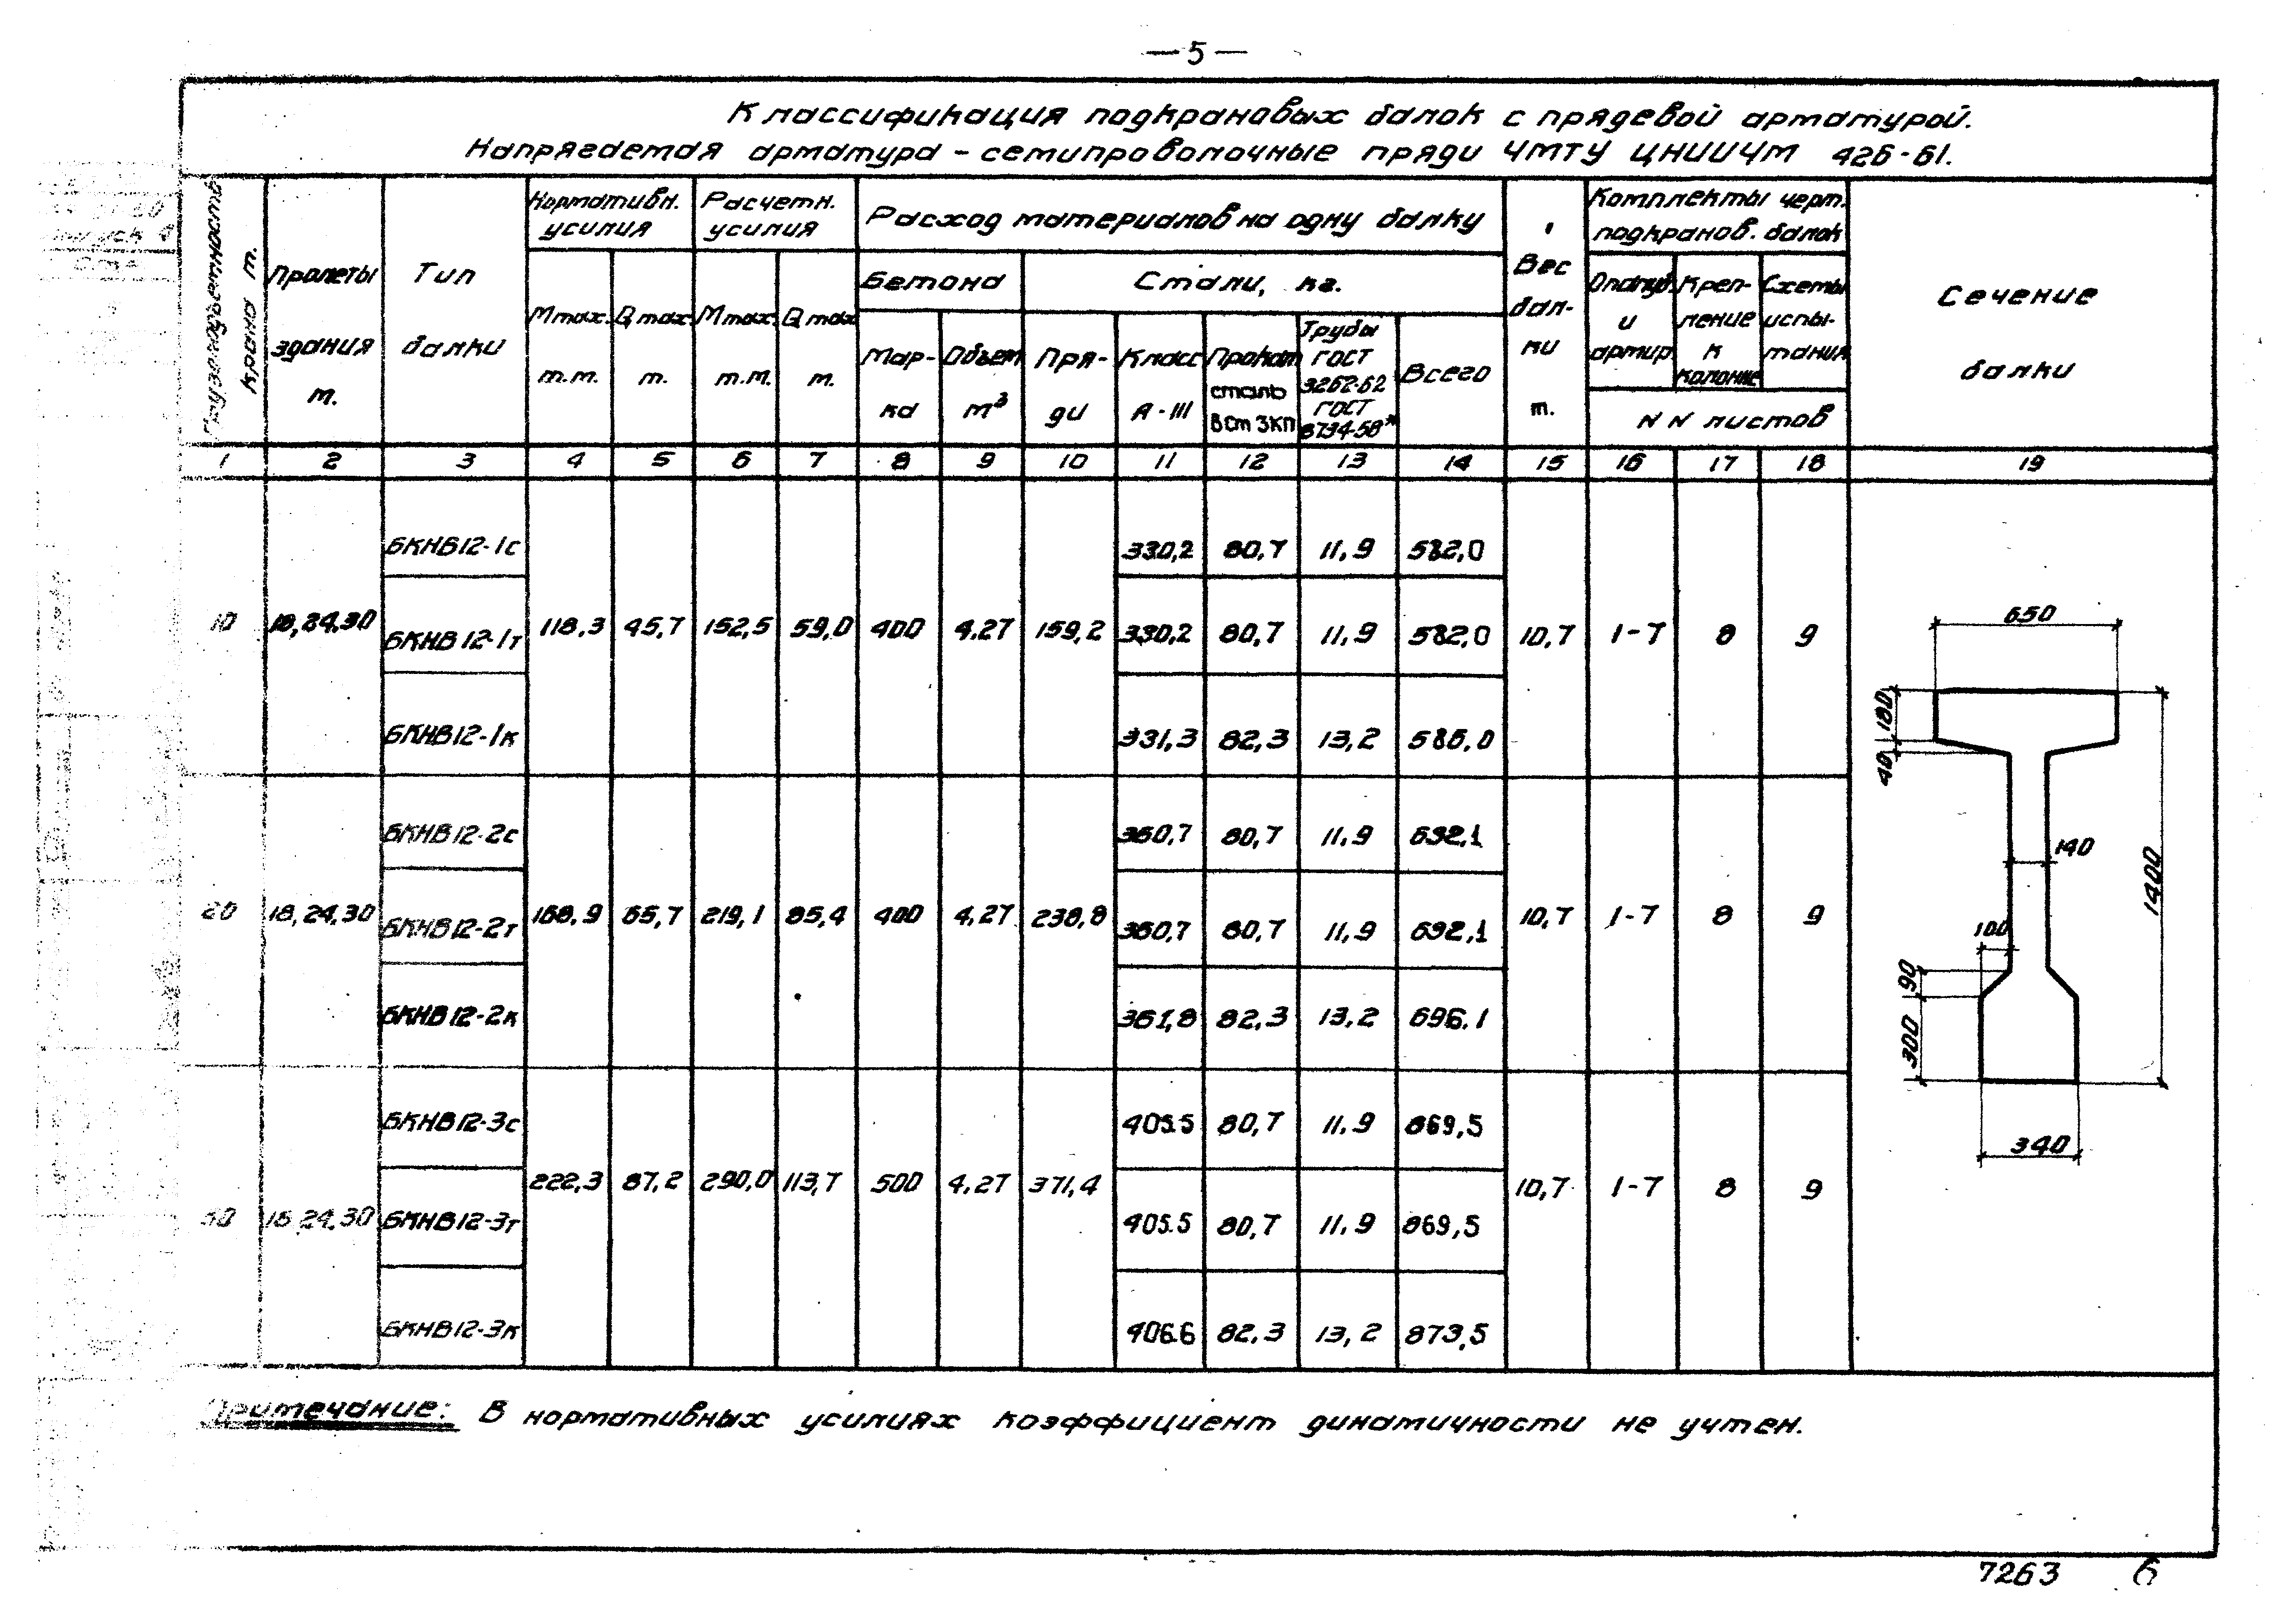 — 5 —
Классификация подкрановых балок с прядевой арматурой.
Напрягаемая арматура – семипроволочные пряди ЧМТУ ЦНИИЧМ 426-61.
крана т.
Пролеты здания т.
Тип балки
Нормативн. усилия
Расчетн. усилия
Расход материалов на одну балку
Вес балки т.
Комплекты черт. подкранов. балок
Сечение балки
Бетона
Стали, кг.
Mmax. т.т.
Qmax. т.
Mmax. т.м.
Qmax т.
Марка
Объем м³
Пряди
Класс А-III
Прокат сталь ВСт 3КП
Трубы ГОСТ 3262-62 ГОСТ 8734-58*
Всего
Опалуб. и армир.
Крепление к колонне
Схемы испытания
NN листов
1 2 3 4 5 6 7 8 9 10 11 12 13 14 15 16 17 18 19
БКНВ12-1с 330,2 80,7 11,9 582,0
10 18,24,30 БКНВ12-1т 118,3 45,7 152,5 59,0 400 4,27 159,2 330,2 80,7 11,9 582,0 10,7 1-7 8 9
БКНВ12-1к 331,3 82,3 13,2 586,0
БКНВ12-2с 360,7 80,7 11,9 692,1
20 18,24,30 БКНВ12-2т 168,9 65,7 219,1 85,4 400 4,27 238,8 360,7 80,7 11,9 692,1 10,7 1-7 8 9
БКНВ12-2к 361,8 82,3 13,2 696.1
БКНВ12-3с 405.5 80,7 11.9 869,5
18 24,30 БКНВ12-3т 222,3 87,2 290,0 113,7 500 4,27 371,4 405.5 80,7 11,9 869,5 10,7 1-7 8 9
БКНВ12-3к 406.6 82.3 13,2 873,5
650
180
40
140
1400
100
90
300
340
Примечание: В нормативных усилиях коэффициент динамичности не учтен.
7263 6